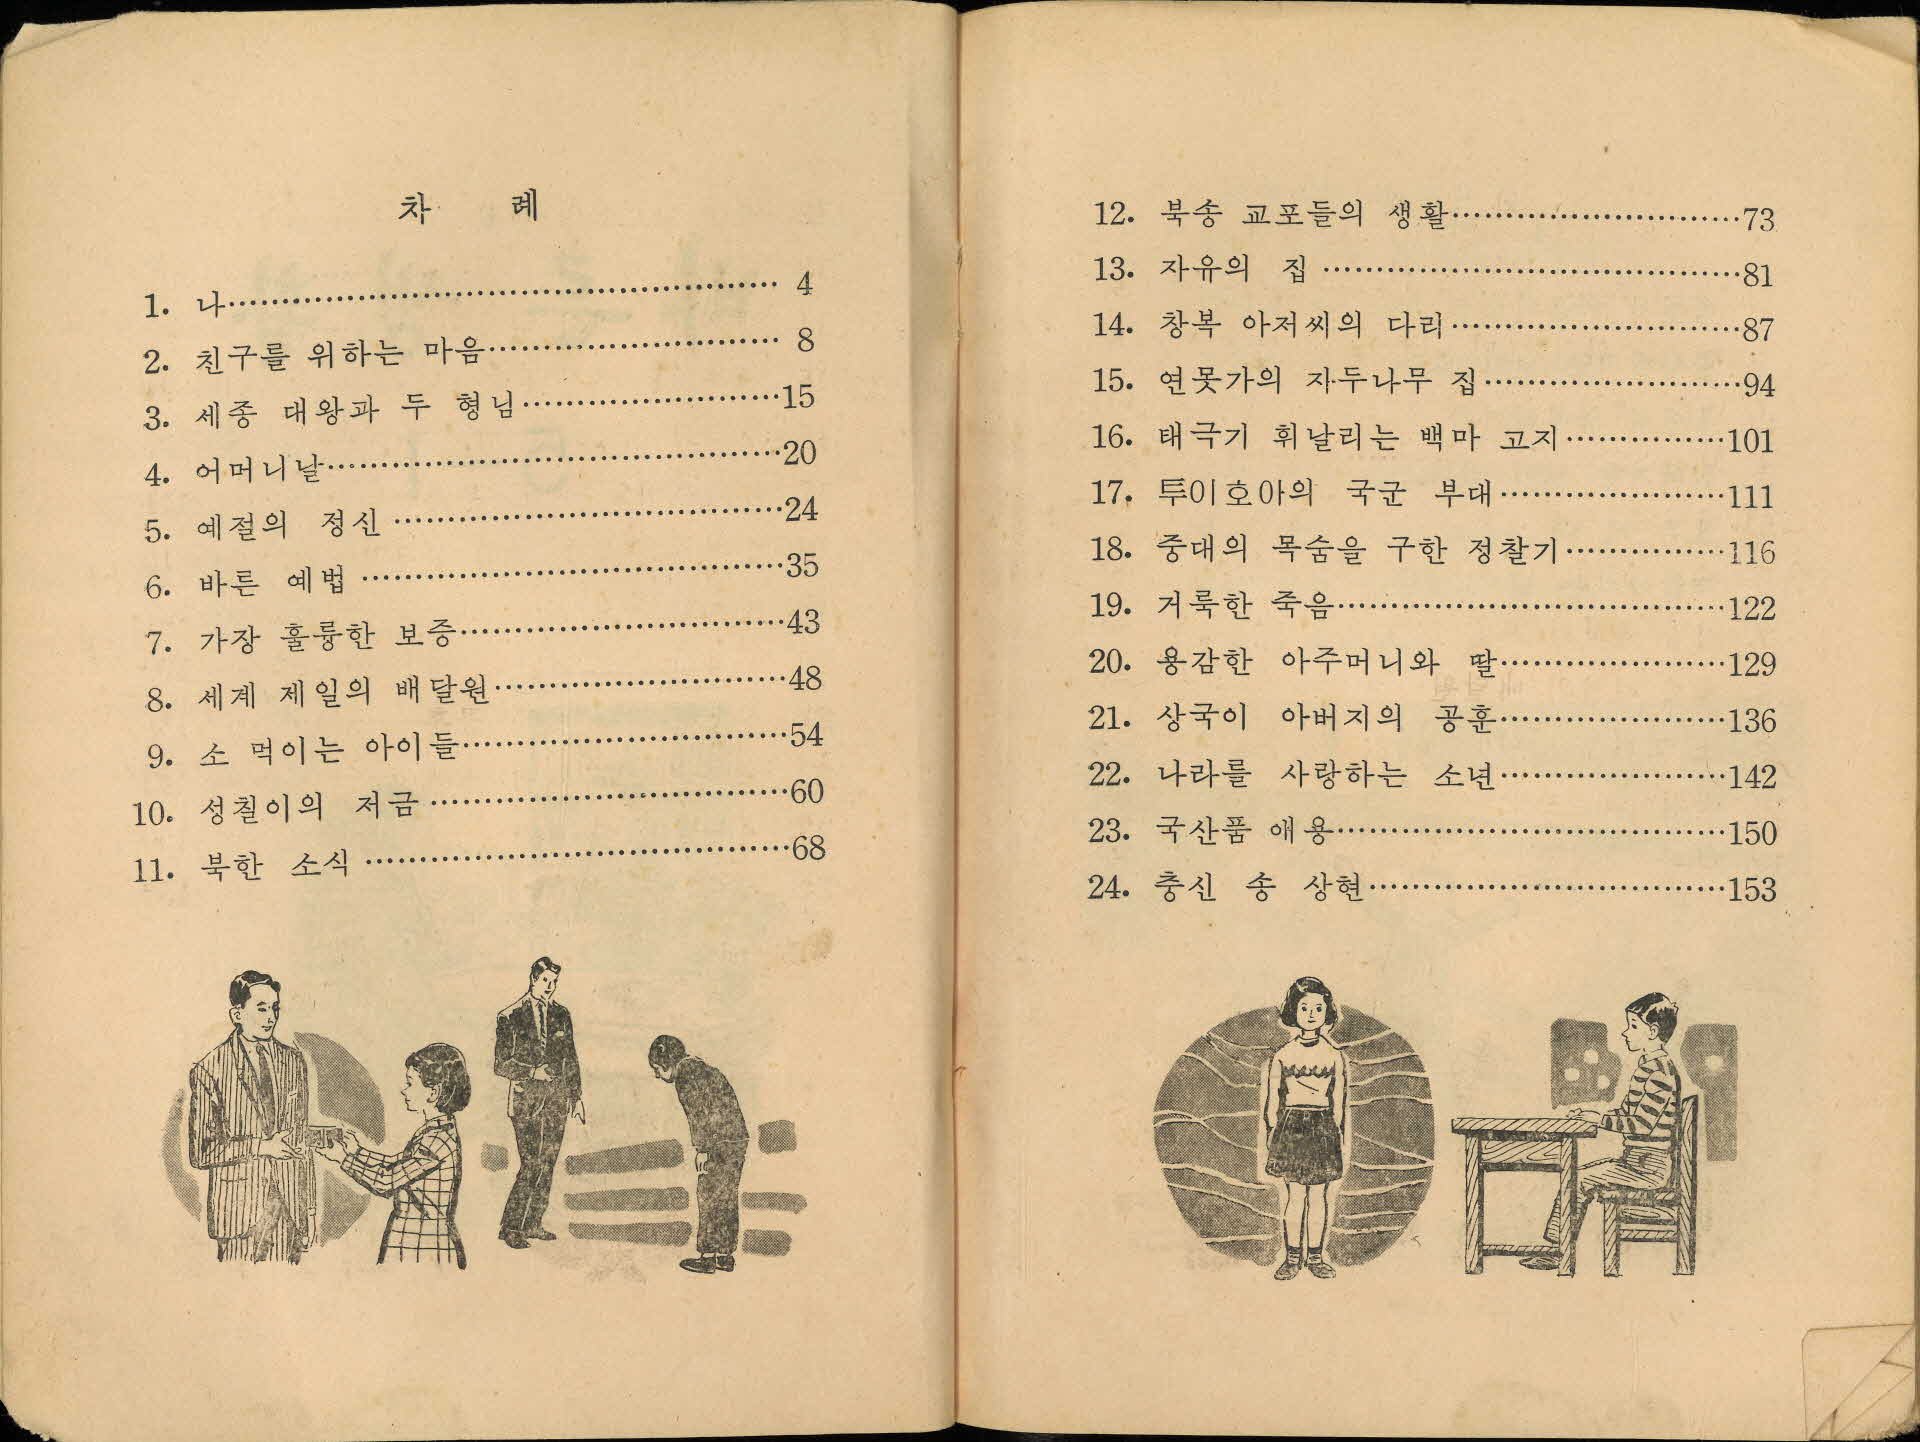 차 례
1. 나 4
2. 친구를 위하는 마음 8
3. 세종 대왕과 두 형님 15
4. 어머니날 20
5. 예절의 정신 24
6. 바른 예법 35
7. 가장 훌륭한 보증 43
8. 세계 제일의 배달원 48
9. 소 먹이는 아이들 54
10. 성칠이의 저금 60
11. 북한 소식 68
12. 북송 교포들의 생활 73
13. 자유의 집 81
14. 창복 아저씨의 다리 87
15. 연못가의 자두나무 집 94
16. 태극기 휘날리는 백마 고지 101
17. 투이호아의 국군 부대 111
18. 중대의 목숨을 구한 정찰기 116
19. 거룩한 죽음 122
20. 용감한 아주머니와 딸 129
21. 상국이 아버지의 공훈 136
22. 나라를 사랑하는 소년 142
23. 국산품 애용 150
24. 충신 송 상현 153